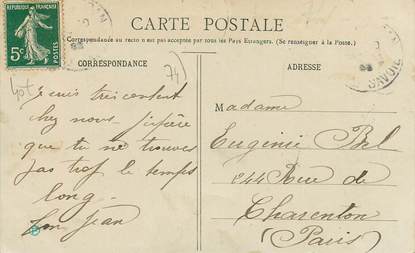 RÉPUBLIQUE FRANÇAISE
5c
POSTES
CARTE POSTALE
Correspondance au recto n'est pas acceptée par tous les Pays Etrangers. (Se renseigner à la Poste.)
CORRESPONDANCE
74
Je suis très content
chez nous j'espère
que tu ne trouves
pas trop le temps
long
Jean
ADRESSE
SAVOIE
Madame
Eugénie
244 Rue de
Charenton
(Paris)